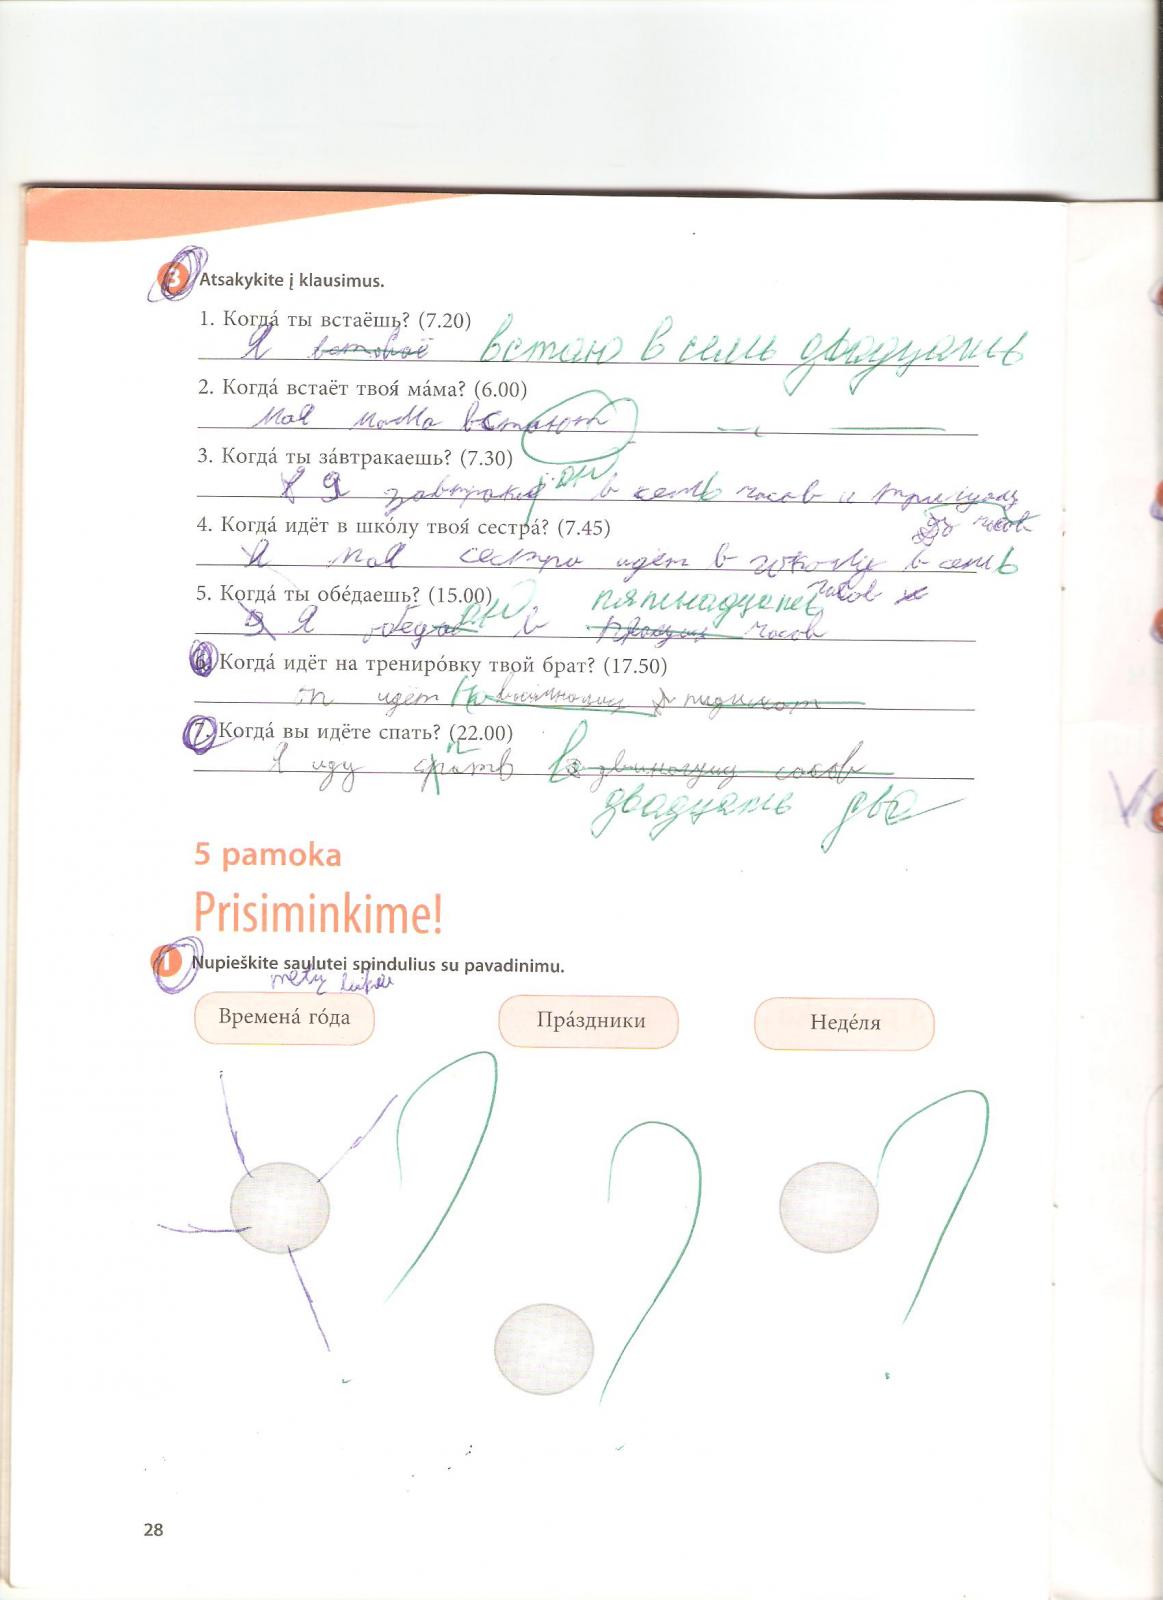 3 Atsakykite į klausimus.
1. Когда́ ты встаёшь? (7.20)
Я встаю в семь двадцать
2. Когда́ встаёт твоя́ ма́ма? (6.00)
моя мама встают
3. Когда́ ты за́втракаешь? (7.30)
Я в семь часов и
4. Когда́ идёт в шко́лу твоя́ сестра́? (7.45)
часов
моя сестра идёт в школу в семь
5. Когда́ ты обе́даешь? (15.00)
пятнадцать часов
Я в часов
6. Когда́ идёт на трениро́вку твой брат? (17.50)
идёт
7. Когда́ вы идёте спать? (22.00)
Я иду в
двадцать два
5 pamoka
Prisiminkime!
1 Nupieškite saulutei spindulius su pavadinimu.
metų laikai
Времена́ го́да Пра́здники Неде́ля
28